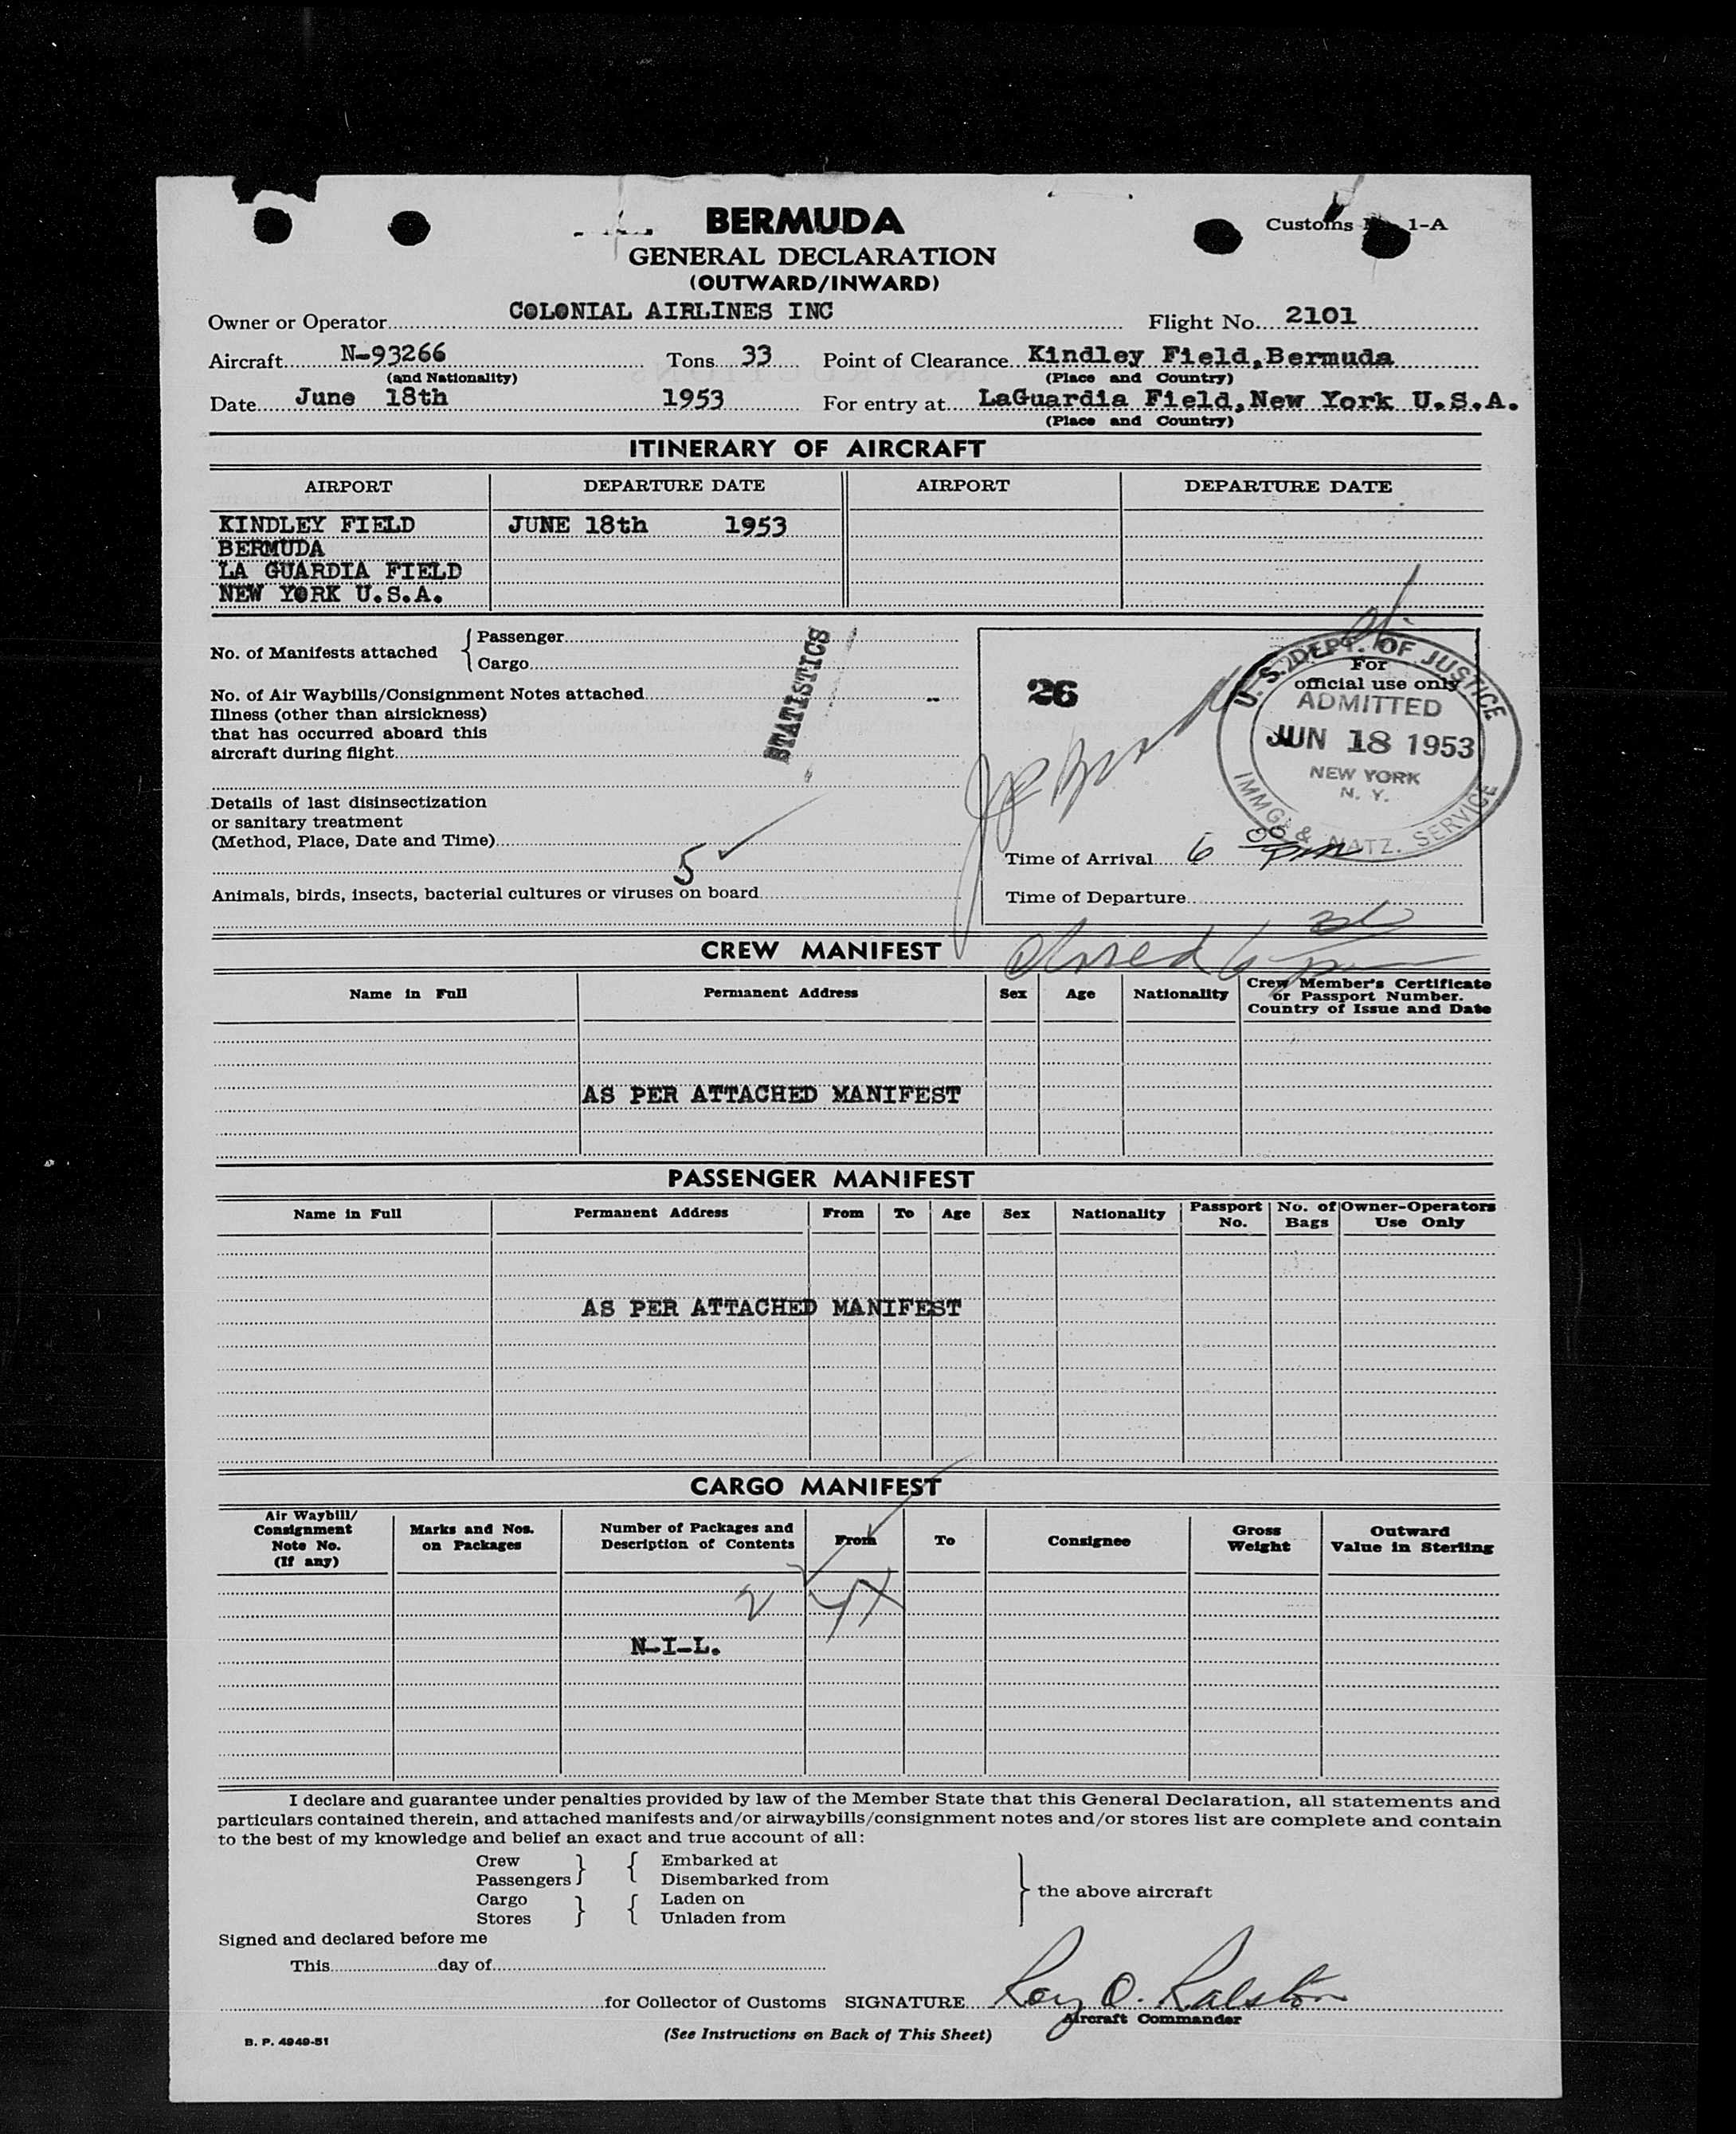 BERMUDA
Customs 1-A
GENERAL DECLARATION
(OUTWARD/INWARD)
Owner or Operator COLONIAL AIRLINES INC Flight No. 2101
Aircraft N-93266 Tons 33 Point of Clearance Kindley Field, Bermuda
(and Nationality) (Place and Country)
Date June 18th 1953 For entry at LaGuardia Field, New York U.S.A.
(Place and Country)
ITINERARY OF AIRCRAFT
AIRPORT DEPARTURE DATE AIRPORT DEPARTURE DATE
KINDLEY FIELD JUNE 18th 1953
BERMUDA
LA GUARDIA FIELD
NEW YORK U.S.A.
No. of Manifests attached { Passenger
Cargo
No. of Air Waybills/Consignment Notes attached --
Illness (other than airsickness)
that has occurred aboard this
aircraft during flight
STATISTICS
Details of last disinsectization
or sanitary treatment
(Method, Place, Date and Time)
5
Animals, birds, insects, bacterial cultures or viruses on board
26
For
official use only
U. S. DEPT. OF JUSTICE
ADMITTED
JUN 18 1953
NEW YORK
N. Y.
IMMG. & NATZ. SERVICE
Time of Arrival 6 00 pm
Time of Departure
CREW MANIFEST
Name in Full Permanent Address Sex Age Nationality Crew Member's Certificate
or Passport Number.
Country of Issue and Date
AS PER ATTACHED MANIFEST
PASSENGER MANIFEST
Name in Full Permanent Address From To Age Sex Nationality Passport No. No. of Bags Owner-Operators Use Only
AS PER ATTACHED MANIFEST
CARGO MANIFEST
Air Waybill/
Consignment
Note No.
(If any)
Marks and Nos.
on Packages
Number of Packages and
Description of Contents
From To Consignee
Gross
Weight
Outward
Value in Sterling
2
N-I-L.
I declare and guarantee under penalties provided by law of the Member State that this General Declaration, all statements and
particulars contained therein, and attached manifests and/or airwaybills/consignment notes and/or stores list are complete and contain
to the best of my knowledge and belief an exact and true account of all:
Crew } { Embarked at
Passengers Disembarked from
Cargo } { Laden on
Stores Unladen from
} the above aircraft
Signed and declared before me
This day of
for Collector of Customs SIGNATURE Roy O. Ralston
Aircraft Commander
B. P. 4949-51
(See Instructions on Back of This Sheet)